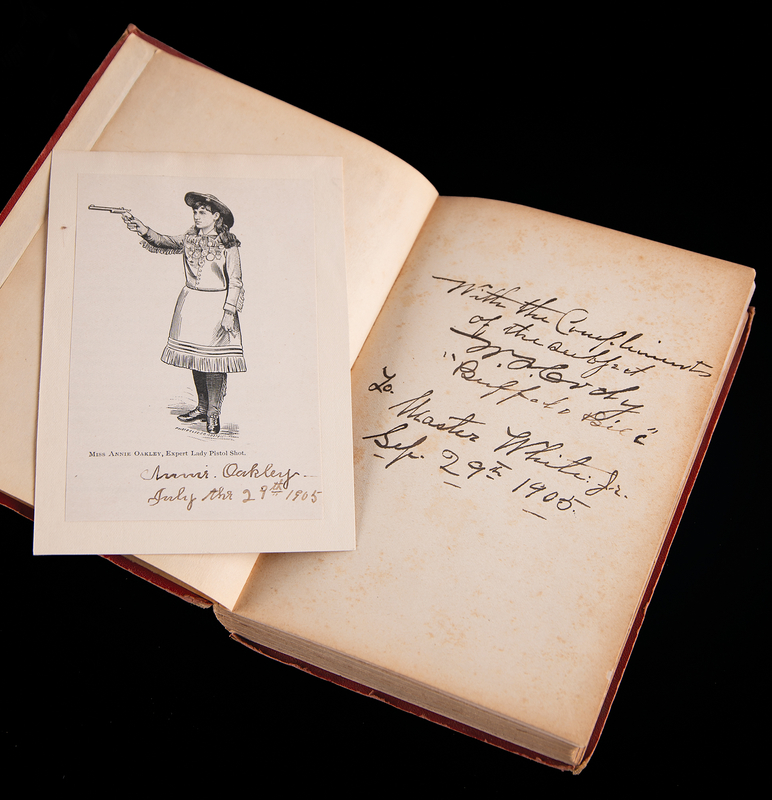 MISS ANNIE OAKLEY, Expert Lady Pistol Shot.
Annie Oakley
July the 29th 1905
With the Compliments
of the subject
W. F. Cody
"Buffalo Bill"
To Master White. Jr.
Sep. 29th 1905.